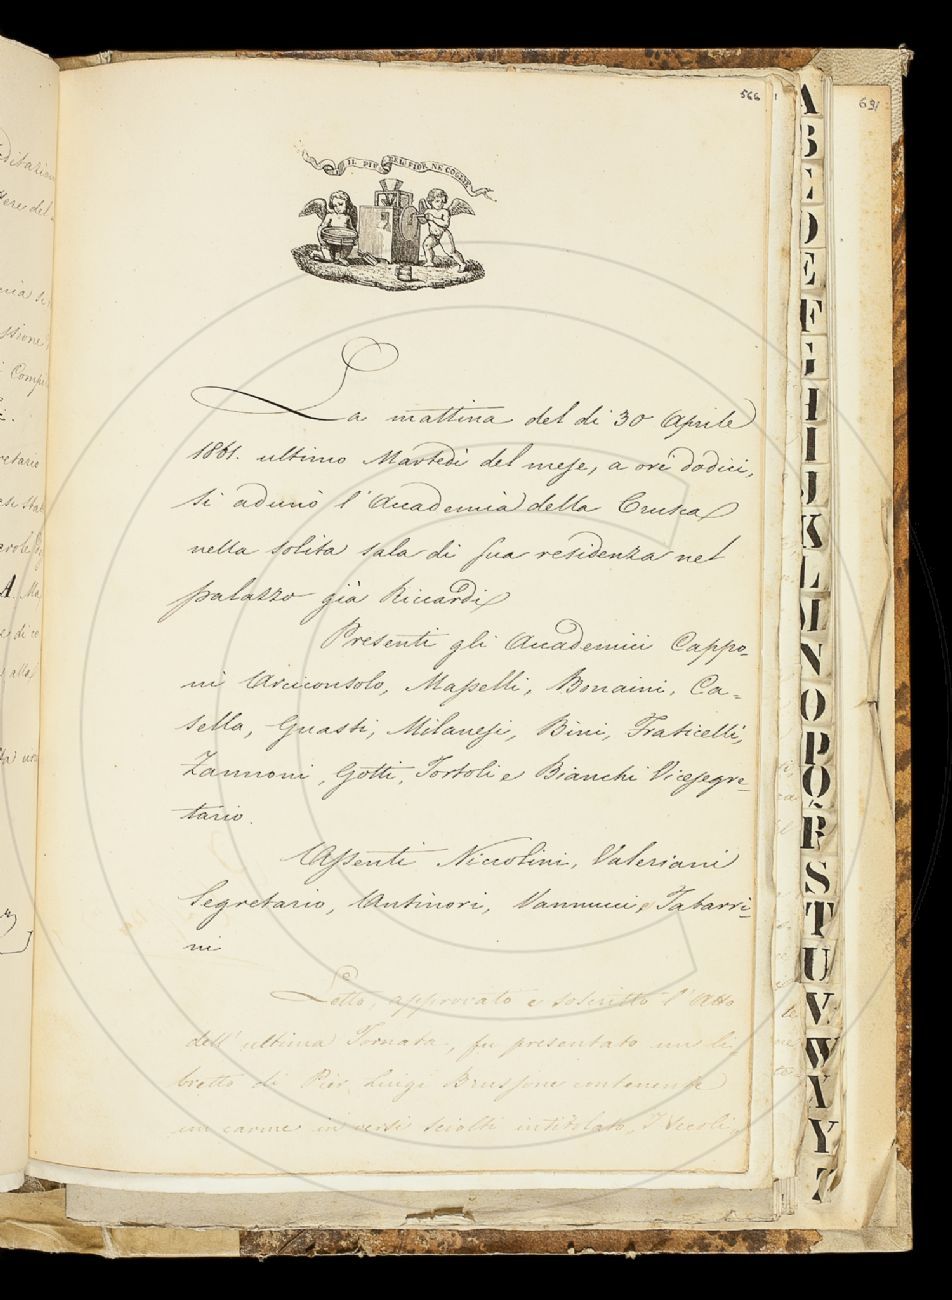 566
691
IL PIÙ BEL FIOR NE COGLIE
La mattina del dì 30 Aprile
1861. ultimo Martedì del mese, a ore dodici,
si adunò l'Accademia della Crusca
nella solita sala di sua residenza nel
palazzo già Riccardi
Presenti gli Accademici Cappo-
ni Arciconsolo, Masselli, Bonaini, Ca-
sella, Guasti, Milanesi, Bini, Fraticelli,
Zannoni, Gotti, Tortoli e Bianchi Vicesegre-
tario.
Assenti Niccolini, Valeriani
Segretario, Antinori, Vannucci, Tabarri-
ni
Letto, approvato e soscritto l'Atto
dell'ultima Tornata, fu presentato un li-
bretto di Pier Luigi contenente
un carme in versi sciolti intitolato,
A
B
C
D
E
F
G
H
I
J
K
L
M
N
O
P
Q
R
S
T
U
V
W
X
Y
Z